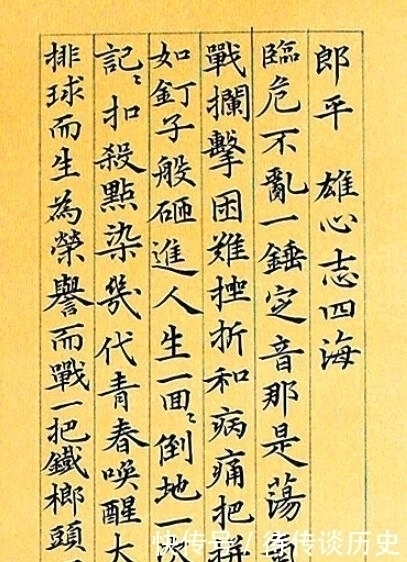 郎平 雄心志四海
臨危不亂一錘定音那是蕩
戰攔擊困難挫折和病痛把拼
如釘子般砸進人生一囬〻倒地一次
記〻扣殺點染幾代青春喚醒大
排球而生為榮譽而戰一把鐵榔頭
快传号/待传谈历史